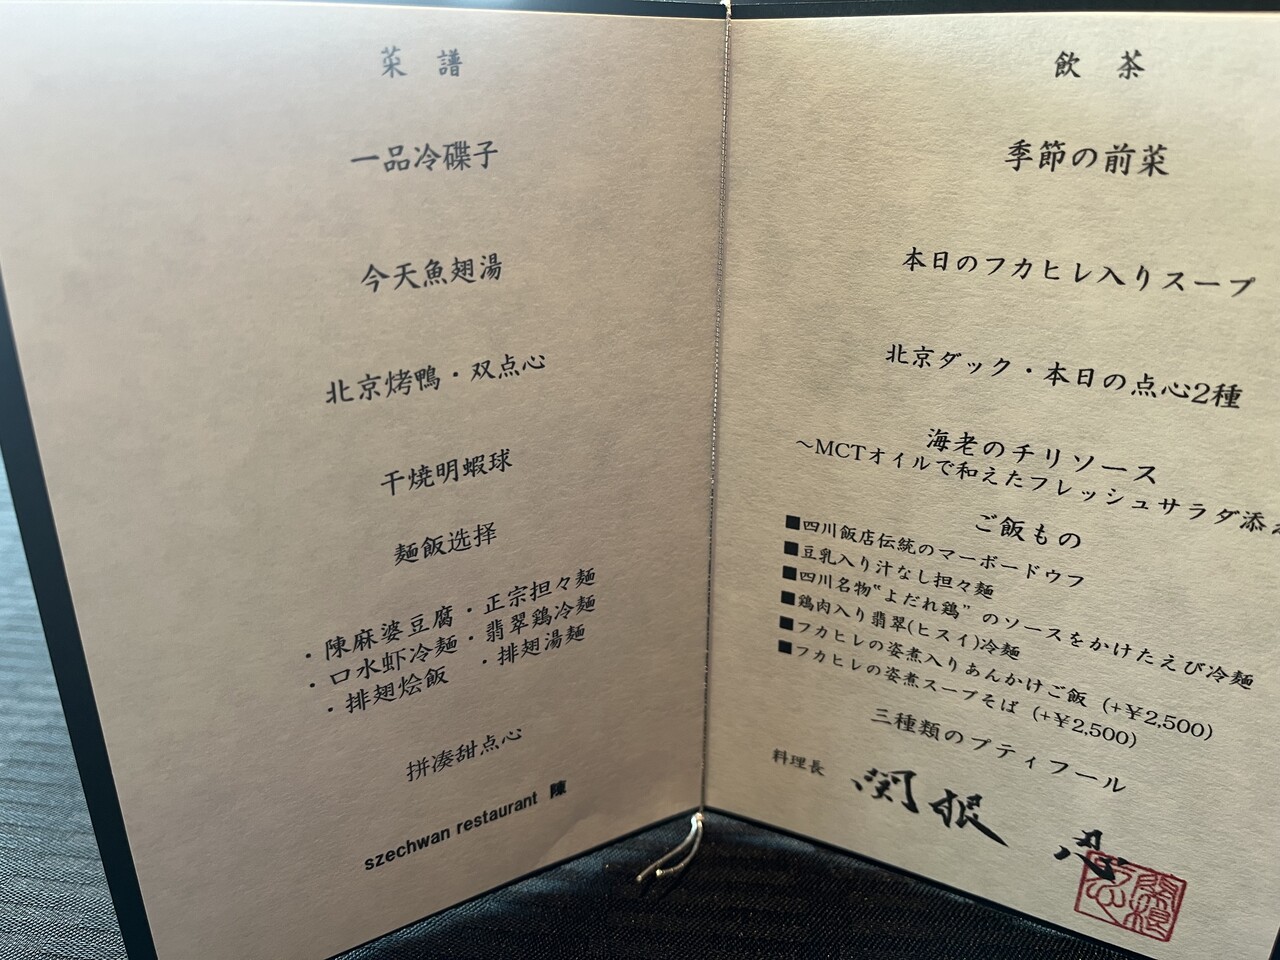 菜 譜
一品冷碟子
今天魚翅湯
北京烤鴨・双点心
干焼明蝦球
麺飯选择
・陳麻婆豆腐・正宗担々麺
・口水虾冷麺・翡翠鶏冷麺
・排翅烩飯 ・排翅湯麺
拼凑甜点心
szechwan restaurant 陳
飲 茶
季節の前菜
本日のフカヒレ入りスープ
北京ダック・本日の点心2種
海老のチリソース
～MCTオイルで和えたフレッシュサラダ添え
ご飯もの
■四川飯店伝統のマーボードウフ
■豆乳入り汁なし担々麺
■四川名物“よだれ鶏”のソースをかけたえび冷麺
■鶏肉入り翡翠(ヒスイ)冷麺
■フカヒレの姿煮入りあんかけご飯 (+¥2,500)
■フカヒレの姿煮スープそば (+¥2,500)
三種類のプティフール
料理長 関根